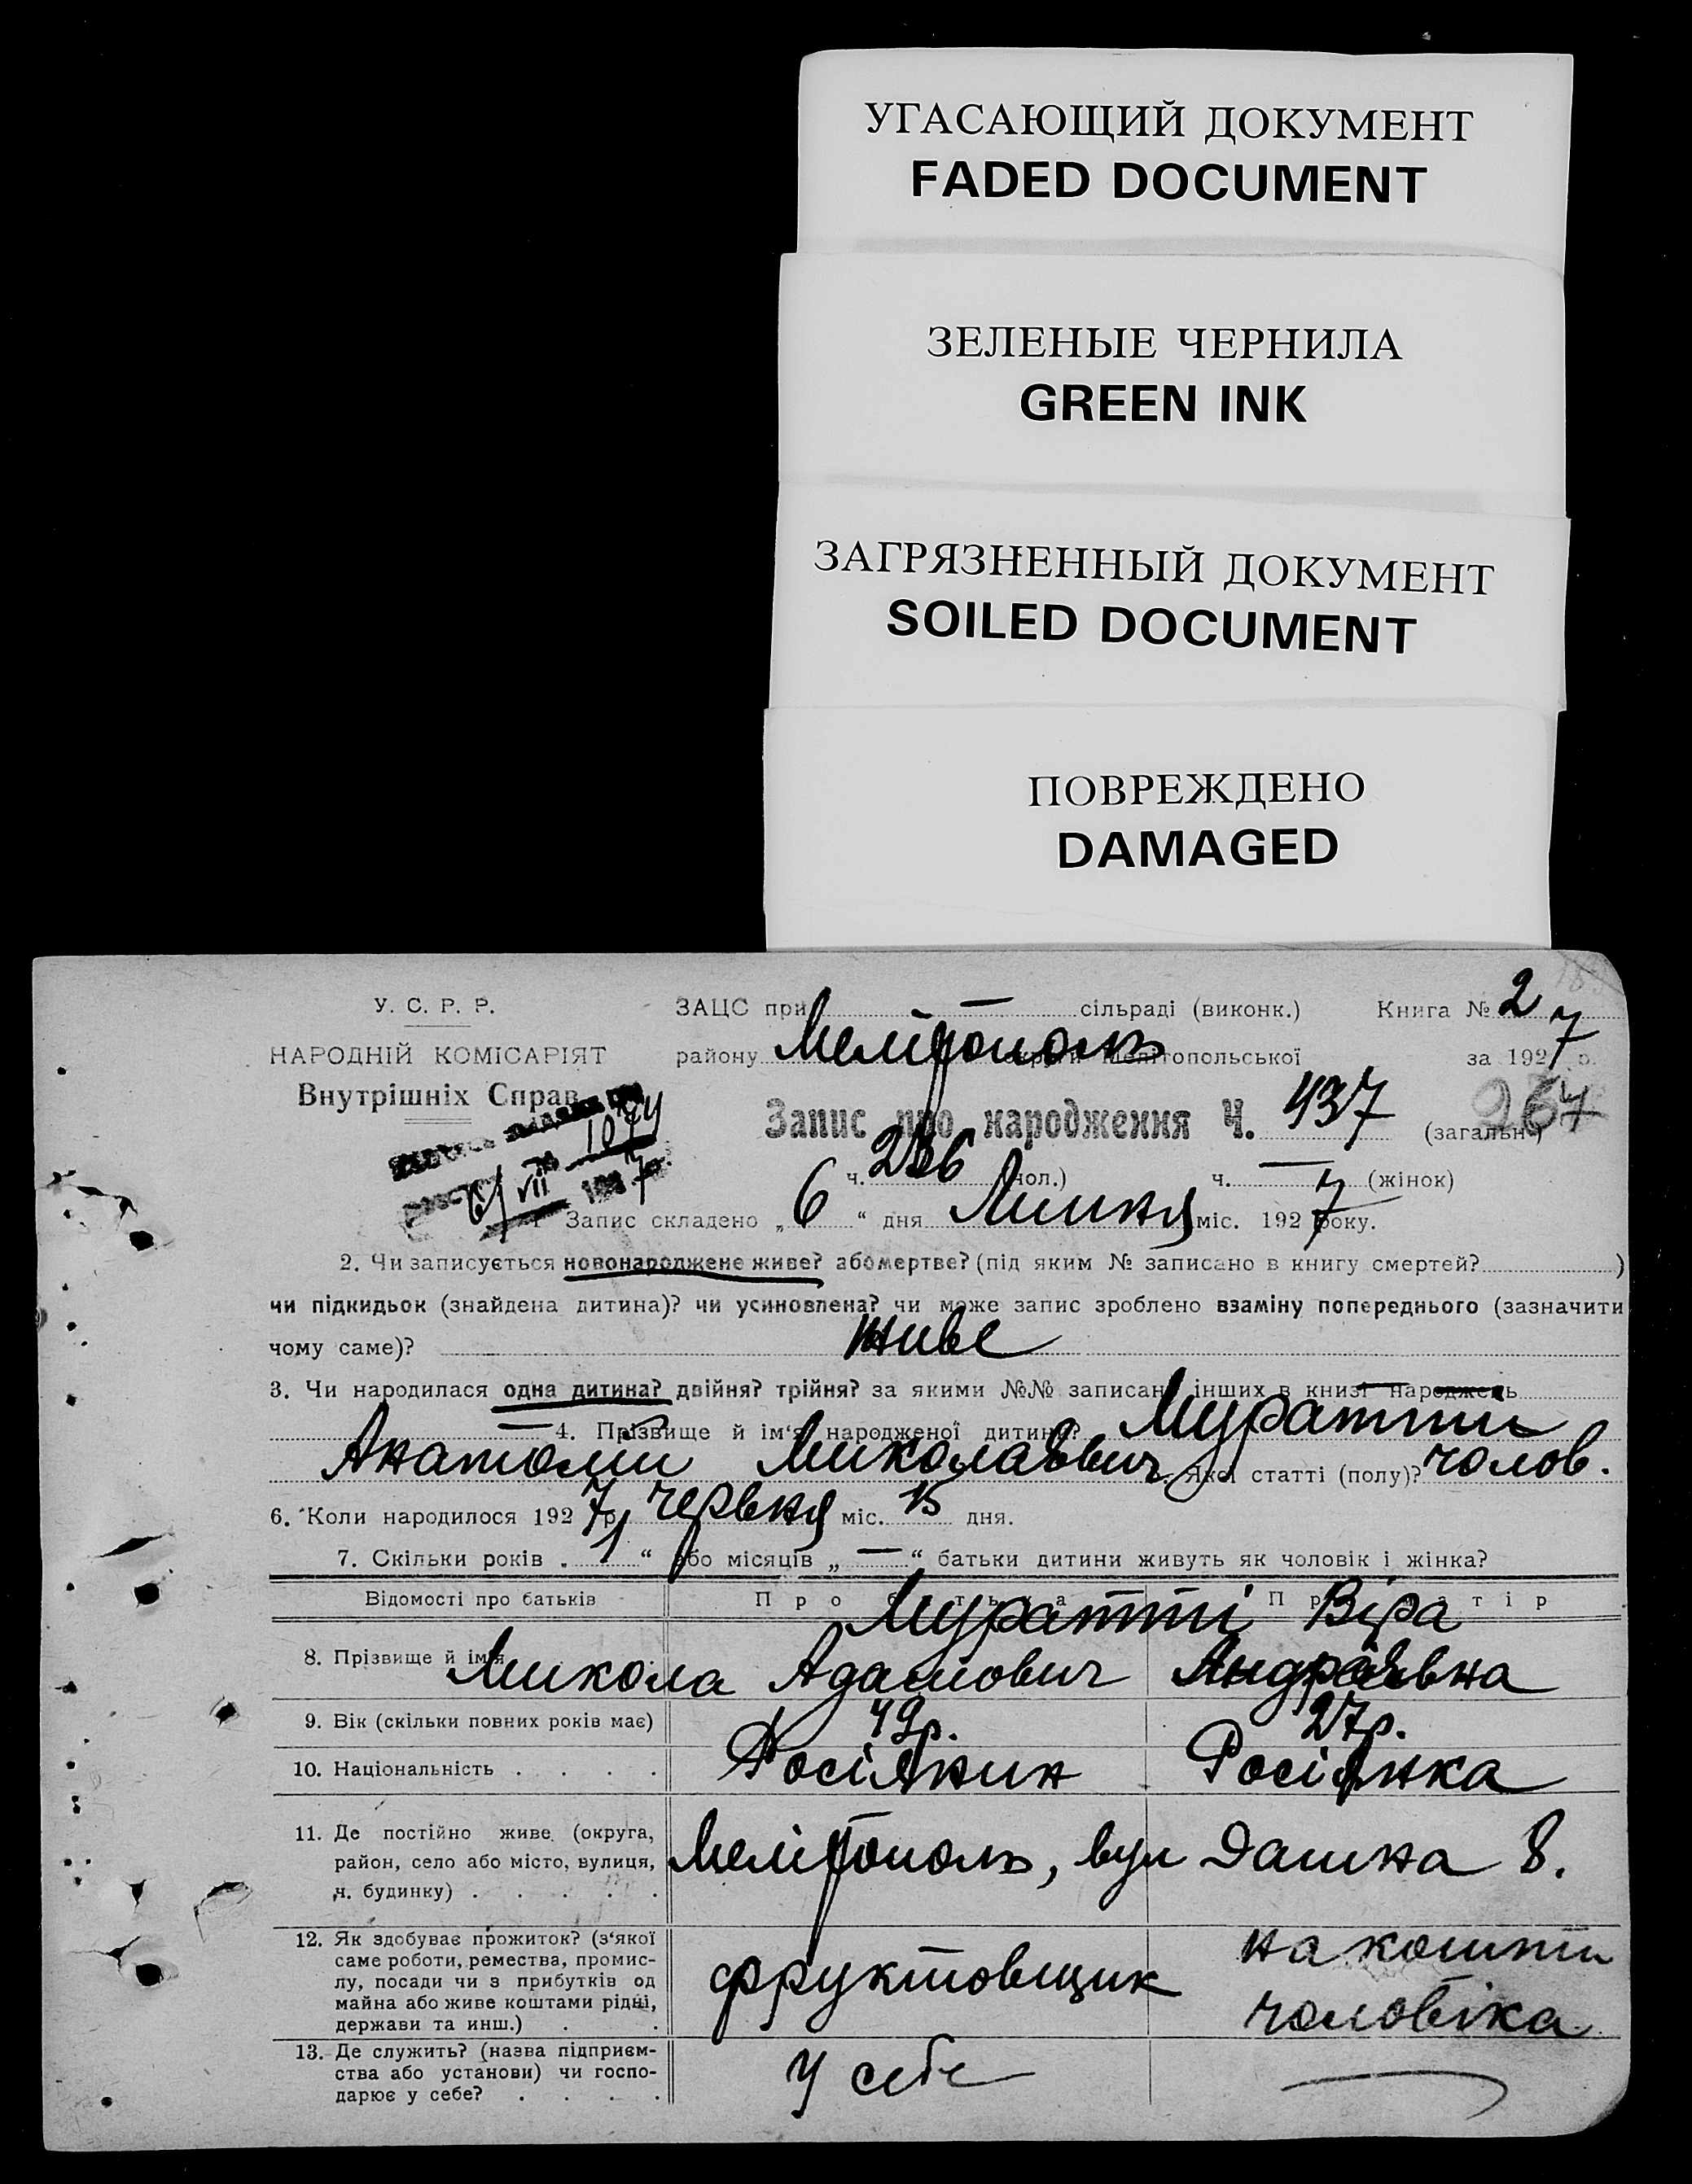 УГАСАЮЩИЙ ДОКУМЕНТ
FADED DOCUMENT
ЗЕЛЕНЫЕ ЧЕРНИЛА
GREEN INK
ЗАГРЯЗНЕННЫЙ ДОКУМЕНТ
SOILED DOCUMENT
ПОВРЕЖДЕНО
DAMAGED
У. С. Р. Р.
НАРОДНІЙ КОМІСАРІЯТ
Внутрішніх Справ
ЗАЦС при — сільраді (виконк.) Книга № 2
району Мелітополь округи Мелітопольської за 1927 р.
Запис про народження Ч. 437 (загальн.) 267
ч. (чол.) ч. — (жінок)
1 Запис складено „6“ дня Липня міс. 1927 року.
2. Чи записується новонароджене живе? або мертве? (під яким № записано в книгу смертей? )
чи підкидьок (знайдена дитина)? чи усиновлена? чи може запис зроблено взаміну попереднього (зазначити
чому саме)? живе
3. Чи народилася одна дитина? двійня? трійня? за якими №№ записані інших в книзі народжень
— 4. Прізвище й ім'я народженої дитини? Муратти
Анатолий Миколайович Якої статті (полу)? чолов.
6. Коли народилося 1927 р. червня міс. 15 дня.
7. Скільки років „1“ або місяців „—“ батьки дитини живуть як чоловік і жінка?
Відомості про батьків Про батька Про матір
8. Прізвище й ім'я Муратті Микола Адамович Віра Андріївна
9. Вік (скільки повних років має) 49р. 27р.
10. Національність . . . . Росіянин Росіянка
11. Де постійно живе (округа,
район, село або місто, вулиця,
ч. будинку) . . . . . Мелітополь, вул 8.
12. Як здобуває прожиток? (з'якої
саме роботи, ремества, промис-
лу, посади чи з прибутків од
майна або живе коштами рідні,
держави та инш.) . . фруктовщик на кошти чоловіка
13. Де служить? (назва підприєм-
ства або установи) чи госпо-
дарює у себе? . . . . У себе —